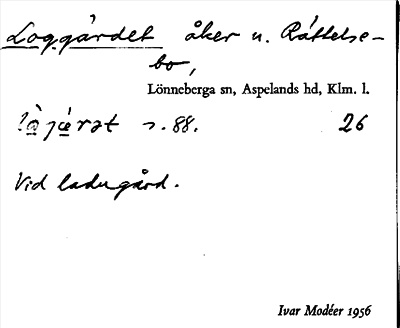 Loggärdet åker u. Råttelse-
bo,
Lönneberga sn, Aspelands hd, Klm. l.
s. 88. 26
Vid ladugård.
Ivar Modéer 1956